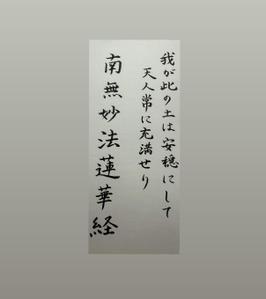 我が此の土は安穏にして
天人常に充満せり
南無妙法蓮華経